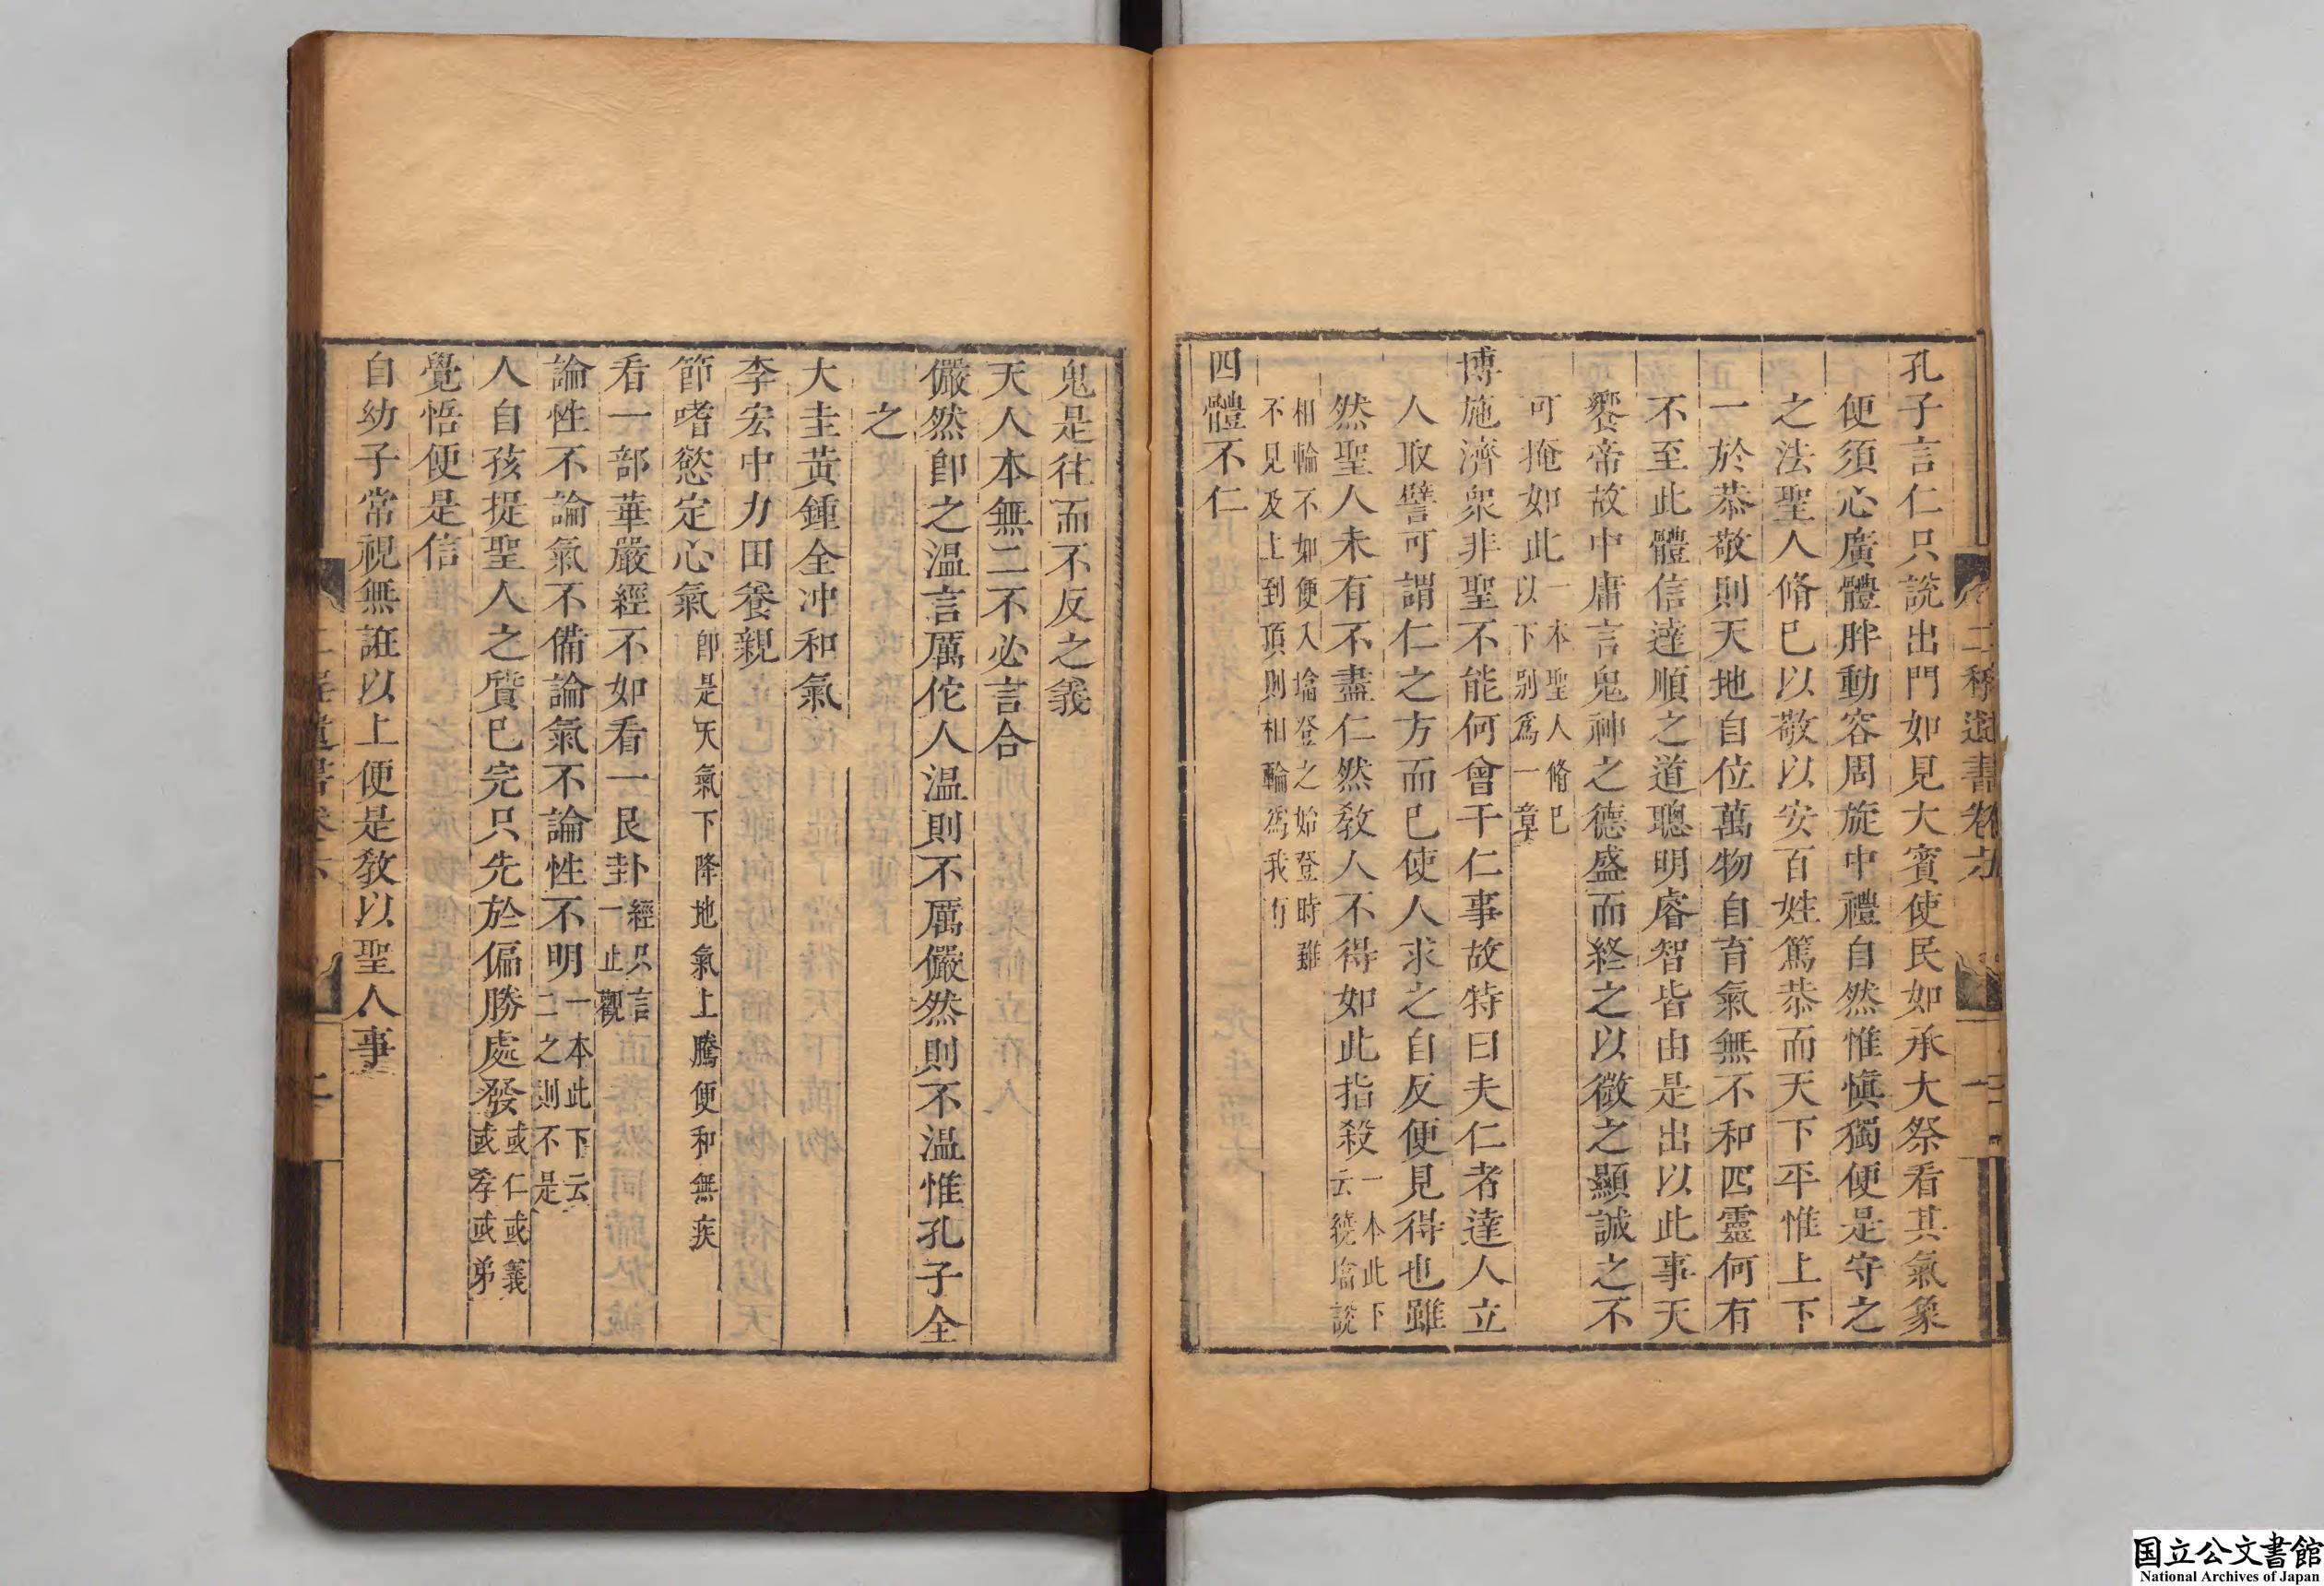 二程遺書卷六
孔子言仁只說出門如見大賓使民如承大祭看其氣象
便須心廣體胖動容周旋中禮自然惟愼獨便是守之
之法聖人脩已以敬以安百姓篤恭而天下平惟上下
一於恭敬則天地自位萬物自育氣無不和四靈何有
不至此體信達順之道聰明睿智皆由是出以此事天
饗帝故中庸言鬼神之德盛而終之以微之顯誠之不
可掩如此一本聖人脩已以下别爲一章
博施濟衆非聖不能何曾干仁事故特曰夫仁者達人立
人取譬可謂仁之方而已使人求之自反便見得也雖
然聖人未有不盡仁然教人不得如此指殺一本此下云繞塔說
相輪不如便入塔登之始登時雖不見及上到頂則相輪爲我有
四體不仁
鬼是往而不反之義
天人本無二不必言合
儼然卽之温言厲佗人温則不厲儼然則不温惟孔子全
之
大圭黃鍾全冲和氣
李宏中力田養親
節嗜慾定心氣卽是天氣下降地氣上騰便和無疾
看一部華嚴經不如看一艮卦經只言一止觀
論性不論氣不備論氣不論性不明一本此下云二之則不是
人自孩提聖人之質已完只先於偏勝處發或仁或義或孝或弟
覺悟便是信
自幼子常視無誑以上便是教以聖人事
二程遺書卷六
国立公文書館
National Archives of Japan